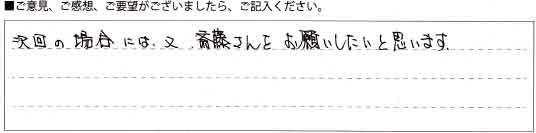 ■ご意見、ご感想、ご要望がございましたら、ご記入ください。
次回の場合には、又、斎藤さんをお願いしたいと思います。